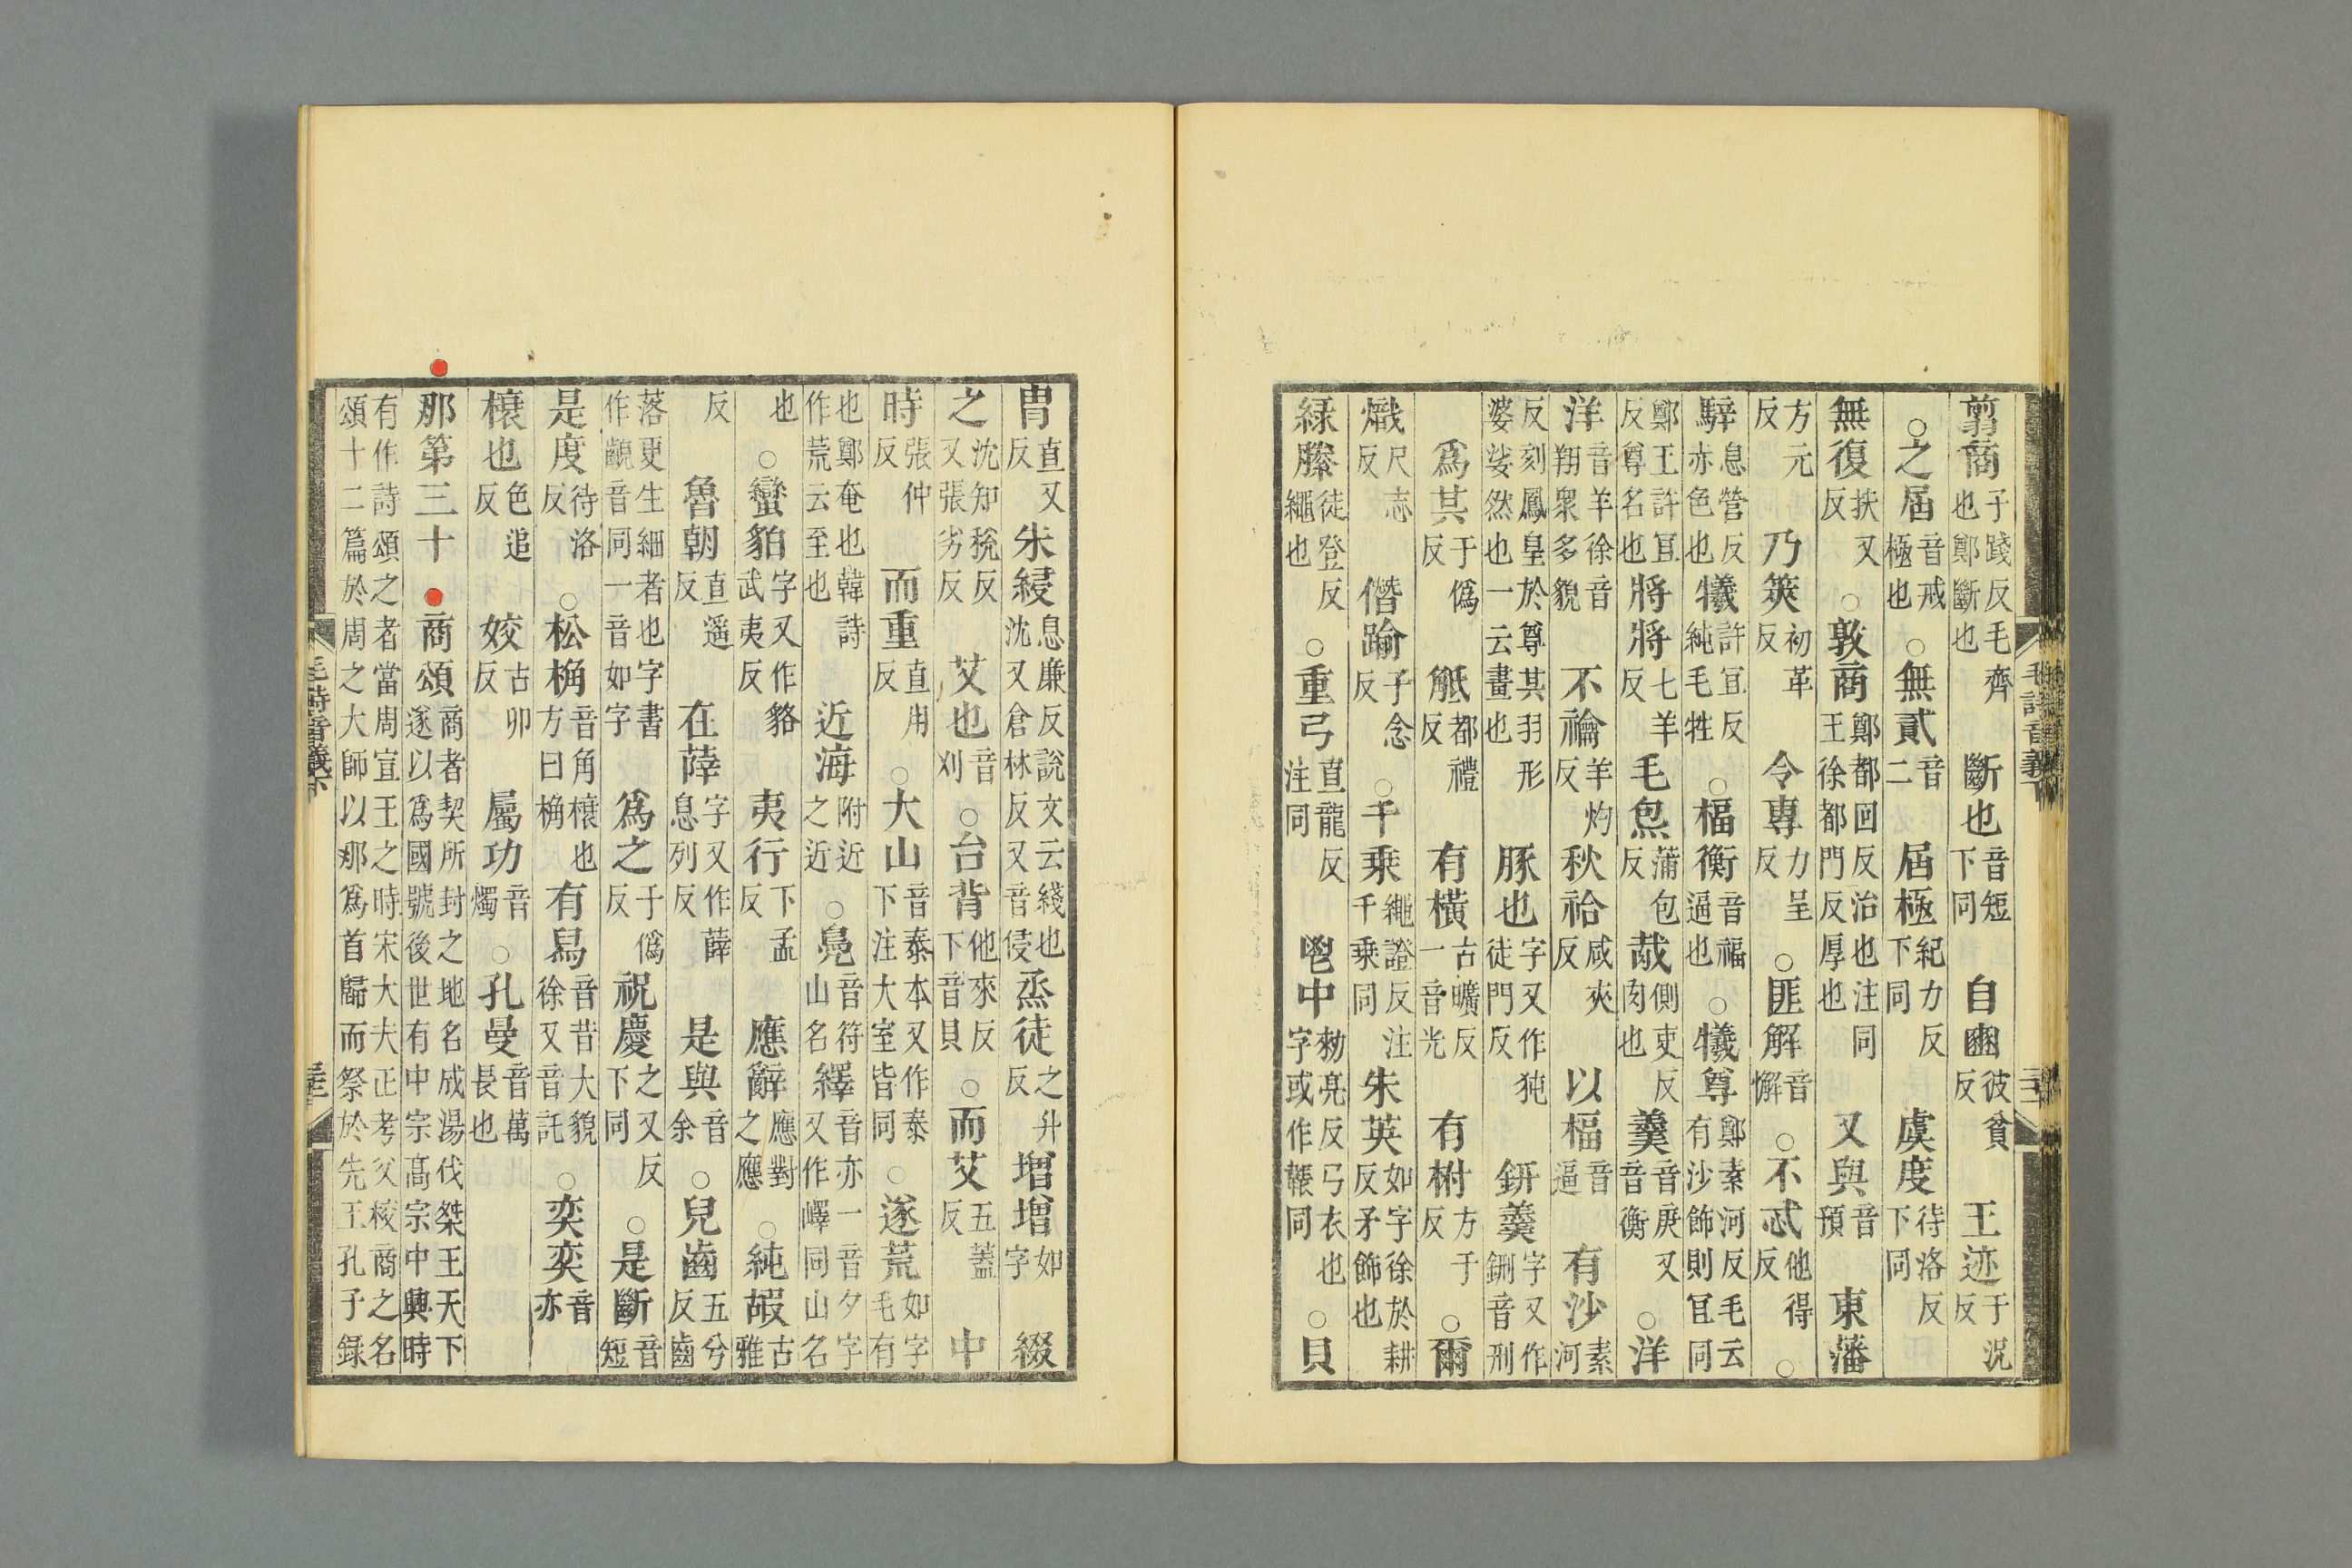 翦商子踐反毛齊也鄭斷也斷也音短下同自豳彼貧反王迹于況反
○之屆音戒極也○無貳音二屆極紀力反下同虞度待洛反下同
無復扶又反○敦商鄭都回反治也注同王徐都門反厚也又與音預東藩
方元反乃筴初革反令專力呈反○匪解音懈○不忒他得反○
騂息營反赤色也犧許宜反純毛牲○楅衡音福逼也○犧尊鄭素河反毛云有沙飾則宜同
鄭王許宜反尊名也將將七羊反毛炰蒲包反胾側吏反肉也羹音庚又音衡○洋
洋音羊徐音翔衆多貌不禴羊灼反秋祫咸夾反以楅音逼有沙素河
反刻鳳皇於尊其羽形婆娑然也一云畫也豚也字又作㹠徒門反鈃羹字又作鉶音刑
爲其于僞反觝都禮反有橫古曠反一音光有柎方于反○爾
熾尺志反僭踰子念反○千乘繩證反注千乘同朱英如字徐於耕反矛飾也
綠縢徒登反繩也○重弓直龍反注同鬯中勑亮反弓衣也字或作韔同○貝
毛詩音義下
胄直又反朱綅息廉反說文云綫也沈又倉林反又音侵烝徒之升反增增如字綴
之沈知稅反又張劣反艾也音刈○台背他來反下音貝○而艾五蓋反中
時張仲反而重直用反○大山音泰本又作泰下注大室皆同○遂荒如字毛有
也鄭奄也韓詩作荒云至也近海附近之近○鳧音符山名繹音亦一音夕字又作嶧同山名
也○蠻貊字又作貉武夷反夷行下孟反應辭應對之應○純嘏古雅
反魯朝直遥反在薛字又作薛息列反是與音余○兒齒五兮反齒
落更生細者也字書作齯音同一音如字爲之于僞反祝慶之又反下同○是斷音短
是度待洛反○松桷音角榱也方曰桷有舄音昔大貌徐又音託○奕奕音亦
榱也色追反姣古卯反屬功音燭○孔曼音萬長也
那第三十商頌商者契所封之地名成湯伐桀王天下遂以爲國號後世有中宗高宗中興時
有作詩頌之者當周宣王之時宋大夫正考父校商之名頌十二篇於周之大師以那爲首歸而祭於先王孔子錄
毛詩音義下